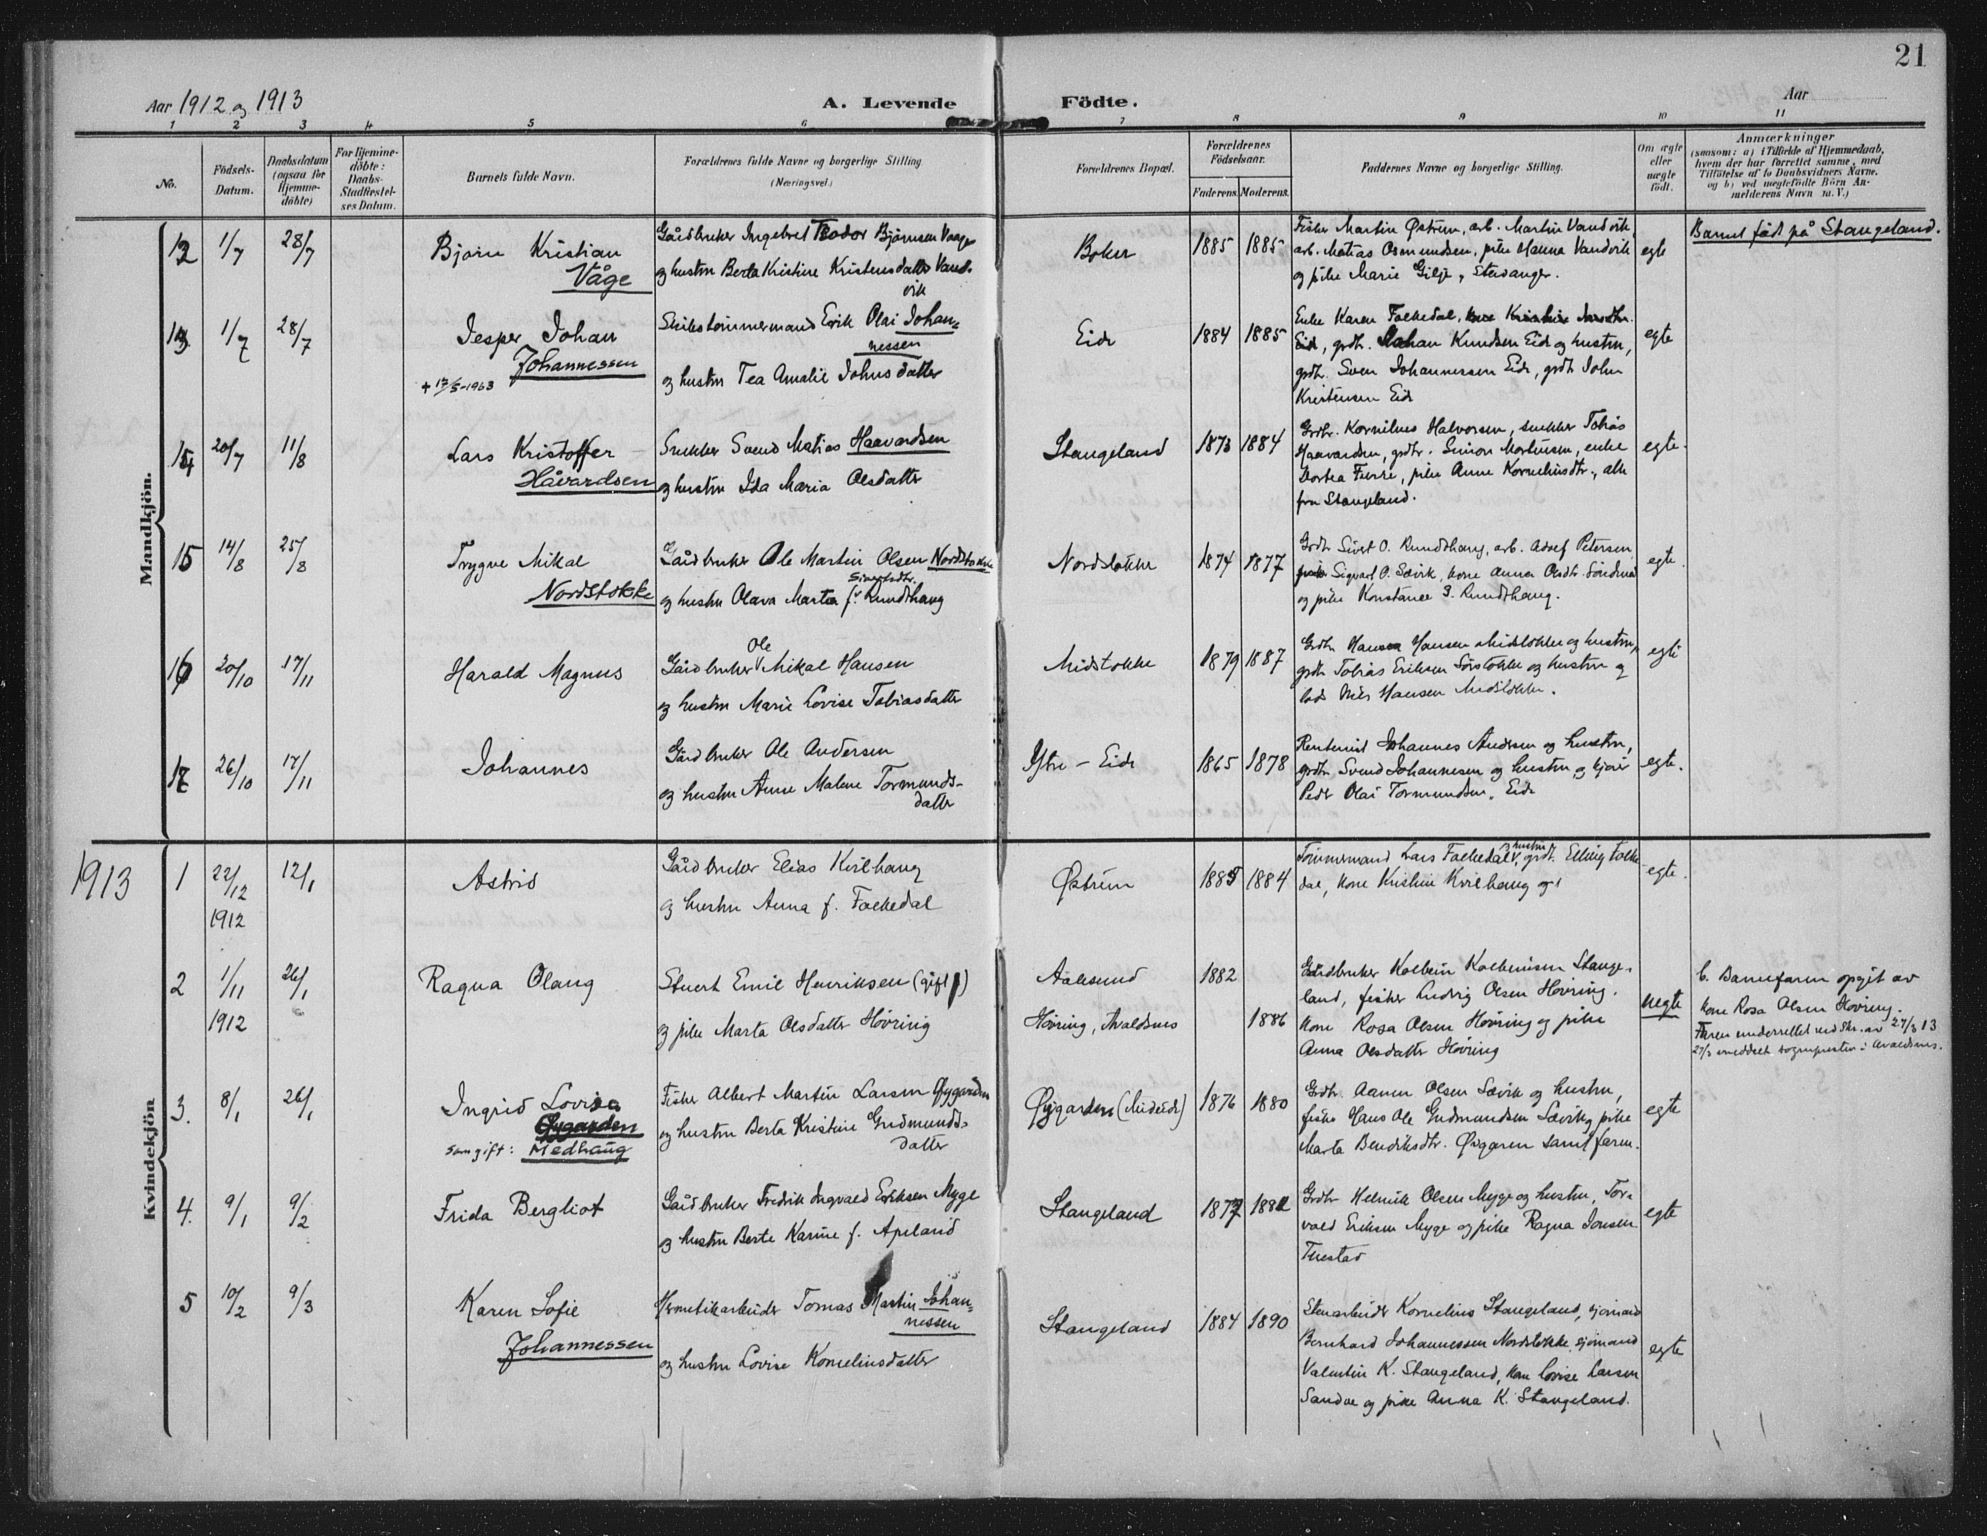 21
Aar 1912 og 1913 A. Levende Födte. Aar
1 2 3 4 5 6 7 8 9 10 11
No.
Födsels-
Datum.
Daabsdatum
(ogsaa for
Hjemme-
döbte)
For Hjemme-
döbte:
Daabs-
Stadfæstel-
ses Datum.
Barnets fulde Navn.
Forældrenes fulde Navne og borgerlige Stilling
(Næringsvei.)
Forældrenes Bopæl.
Forældrenes
Födselsaar.
Faderens. Moderens.
Faddernes Navne og borgerlige Stilling.
Om ægte
eller
uægte
født.
Anmærkninger
(saasom: a) i Tilfælde af Hjemmedaab,
hvem der har forrettet samme, med
Tilföielse af to Daabsvidners Navne,
og b) ved uægtefödte Börn An-
melderens Navn m. V.)
Mandkjön.
12 1/7 28/7 Bjørn Kristian
Våge
Gårdbruker Ingebret Teodor Bjørnsen Vaage
og hustru Berta Kristine Kristensdatter Vand-
vik
Boken 1885 1885
Fisker Martin Østrem, arb. Martin Vandvik,
arb. Matias Osmundsen, pike Hanna Vandvik
og pike Marie Gilje, Stavanger.
egte
Barnet født på Stangeland.
13 1/7 28/7 Jesper Johan
Johannessen
+ 17/5-1963
Skibstømmermand Erik Olai Johan-
nessen
og hustru Tea Amalie Johnsdatter
Eide 1884 1885
Enke Karen Falkedal, kone Kristine
Eide, grdbr. Johan Knudsen Eide og hustru,
grdbr. Sven Johannessen Eide, grdbr John
Kristensen Eide
egte
14 20/7 11/8 Lars Kristoffer
Håvardsen
Snekker Svend Matias Haavardsen
og hustru Ida Maria Olsdatter
Stangeland 1873 1884
Grdbr. Kornelius Halvorsen, snekker Tobias
Haavardsen, grdbr. Simon Mortensen, enke
Dortea Ferre, pike Anne Korneliusdtr., alle
fra Stangeland.
egte.
15 14/8 25/8 Trygve Mikal
Nordstokke
Gårdbruker Ole Martin Olsen Nordstokke
Sivertsdtr.
og hustru Olava Marta f. Rundhaug
Nordstokke 1874 1877
Grdbr Sivert O. Rundhaug, arb. Adolf Petersen
Sigvart O. Sævik, kone Anna Olsdtr.
og pike Konstanse S. Rundhaug.
egte.
16 20/10 17/11 Harald Magnus
Ole
Gårdbruker Mikal Hansen
og hustru Marie Lovise Tobiasdatter
Midstokke 1879 1887
Grdbr Hans Hansen Midstokke og hustru,
grdbr Tobias Eriksen Sørstokke og hustru og
lods Nils Hansen Midstokke.
egte
17 26/10 17/11 Johannes
Gårdbruker Ole Andersen
og hustru Anne Malene Tormunds-
datter
Ytre - Eide 1865 1878
Rentenist Johannes Andersen og hustru,
grdbr Svend Johannesen og hustru og
Peder Olai Tormundsen, Eide
egte.
1913
Kvindekjön
1 22/12 12/1 Astrid
1912
Gårdbruker Elias Kvilhaug
og hustru Anna f. Falkedal
Østrem 1885 1884
og hustru
Tømmermand Lars Falkedal, grdbr. Elling Falke-
dal, kone Kristine Kvilhaug og
egte.
2 1/11 26/1 Ragna Olaug
1912
Stuert Emil Henriksen (gift)
og pike Marta Olsdatter Høvring
Aalesund 1882
Høvring, Avaldsnes 1886
Gårdbruker Kolbein Kolbeinsen Stange-
land, fisker Ludvig Olsen Høvring.
kone Rosa Olsen Høvring og pike
Anna Olsdatter Høvring
uegte
b. Barnefaren opgit av
kone Rosa Olsen Høvring.
Faren underrettet ved Skr. av 27/3 13
27/3 meddelt sogneprsten i Avaldsnes.
3. 8/1 26/1 Ingrid Lovisa
Øygarden
som gift: Medhaug
Fisker Albert Martin Larsen Øygarden
og hustru Berta Kristine Gudmunds-
datter
Øygarden (Mideide) 1876 1880
Grdbr Aamon Olsen Sævik og hustru,
fisker Hans Ole Gudmundsen Sævik, pike
Marta Bendiksdtr. Øygaren samt faren.
egte
4. 9/1 9/2 Frida Bergliot
Gårdbruker Fredrik Ingvald Eriksen Myge
og hustru Berte Karine f. Apeland
Stangeland 1877 1882
Grdbr Helmik Olsen Myge og hustru, Tor-
vald Eriksen Myge og pike Ragna Jonsen
Tuestad
egte
5 10/2 9/3 Karen Sofie
Johannessen
Hermetikarbeider Tomas Martin Johan-
nessen
og hustru Lovise Korneliusdatter
Stangeland 1884 1890
Stenarbeider Kornelius Stangeland, sjømand
Bernhard Johannessen Nordstokke, sjømand
Valentin K. Stangeland, kone Lovise Larsen
Sandve og pike Anna K. Stangeland.
egte